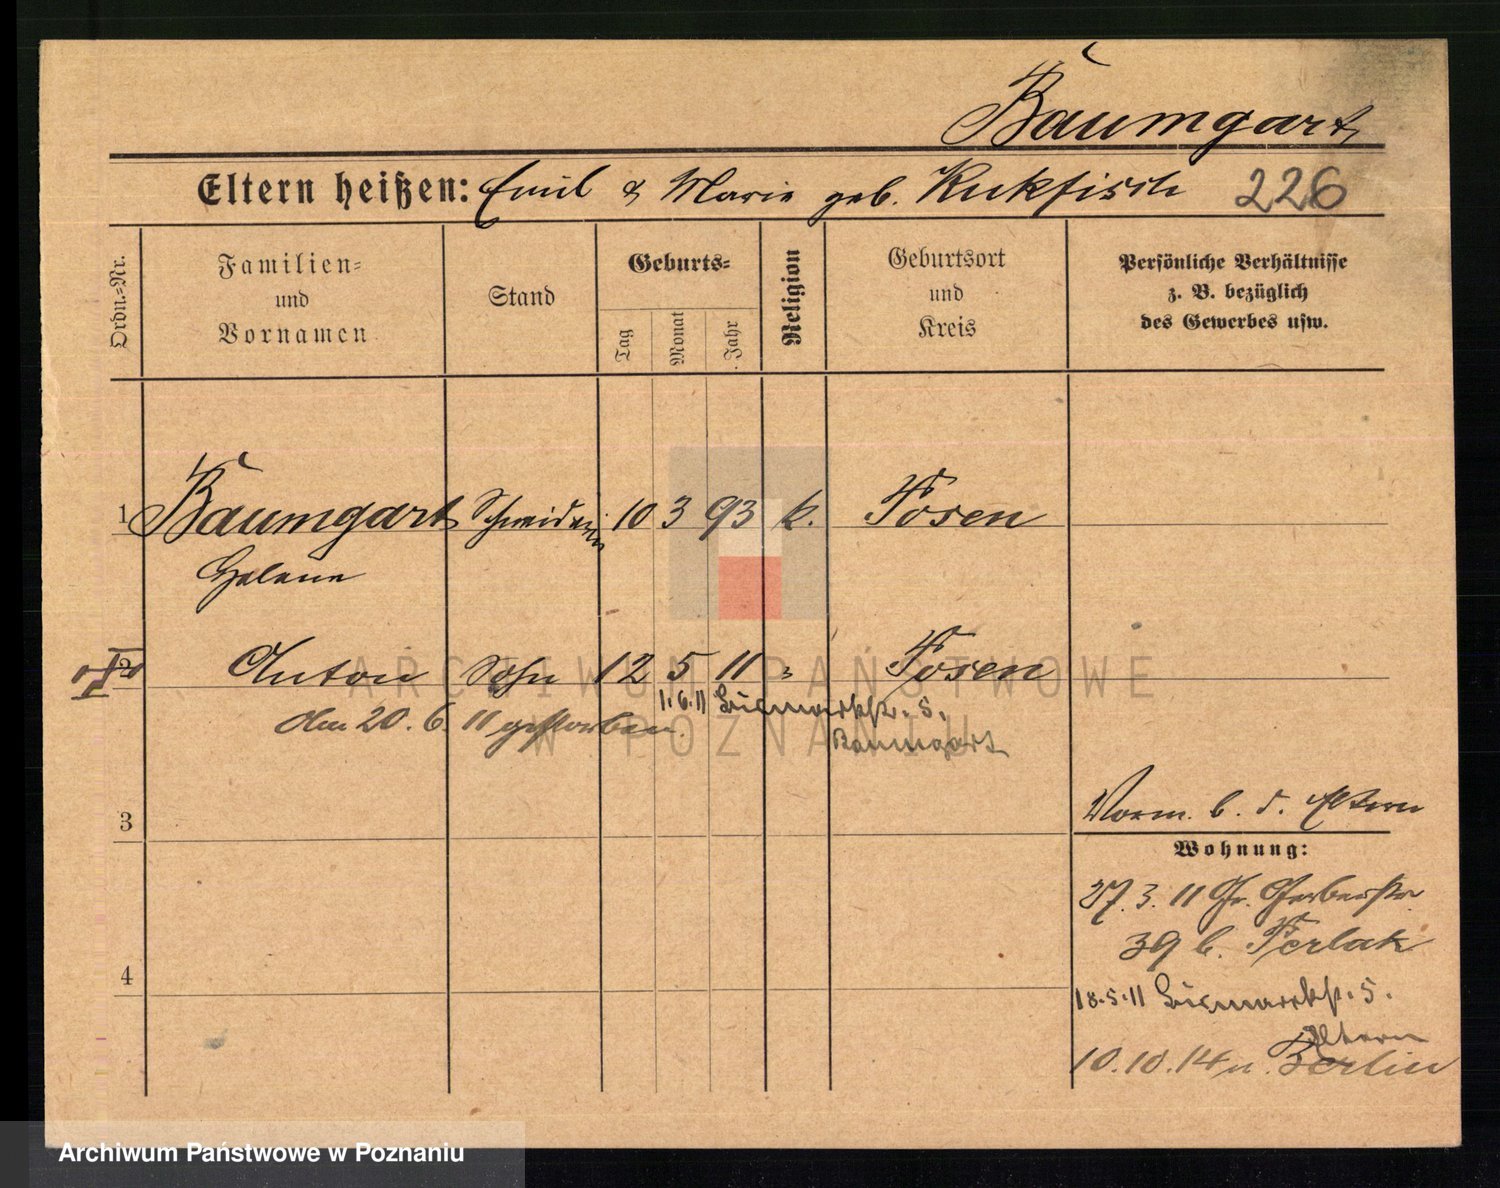 Baumgart
Eltern heißen: Emil & Marie geb. Kukfisch 226
Ordn.=Nr.
Familien=
und
Vornamen
Stand
Geburts=
Tag
Monat
Jahr
Religion
Geburtsort
und
Kreis
Persönliche Verhältnisse
z. B. bezüglich
des Gewerbes usw.
1 Baumgart Schneiderin 10 3 93 k. Posen
Helene
2 Anton Sohn 12 5 11 " Posen
1.6.11 Bismarckstr. 5.
Am 20. 6. 11 gestorben.
Baumgart
Vorm. b. d. Eltern
3
Wohnung:
27. 3. 11 Gr. Gerberstr.
39 b. Perlak
4
18.5.11 Bismarckstr. 5.
Eltern
10.10.14 n. Berlin
ARCHIWUM PAŃSTWOWE
W POZNANIU
Archiwum Państwowe w Poznaniu